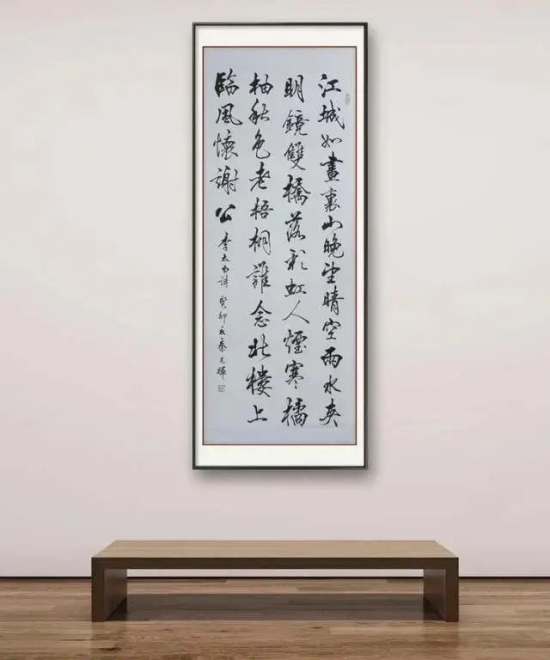 江城如畫裏山晚望晴空雨水夾
明鏡雙橋落彩虹人煙寒橘
柚秋色老梧桐誰念北樓上
臨風懷謝公
李太白詩 癸卯